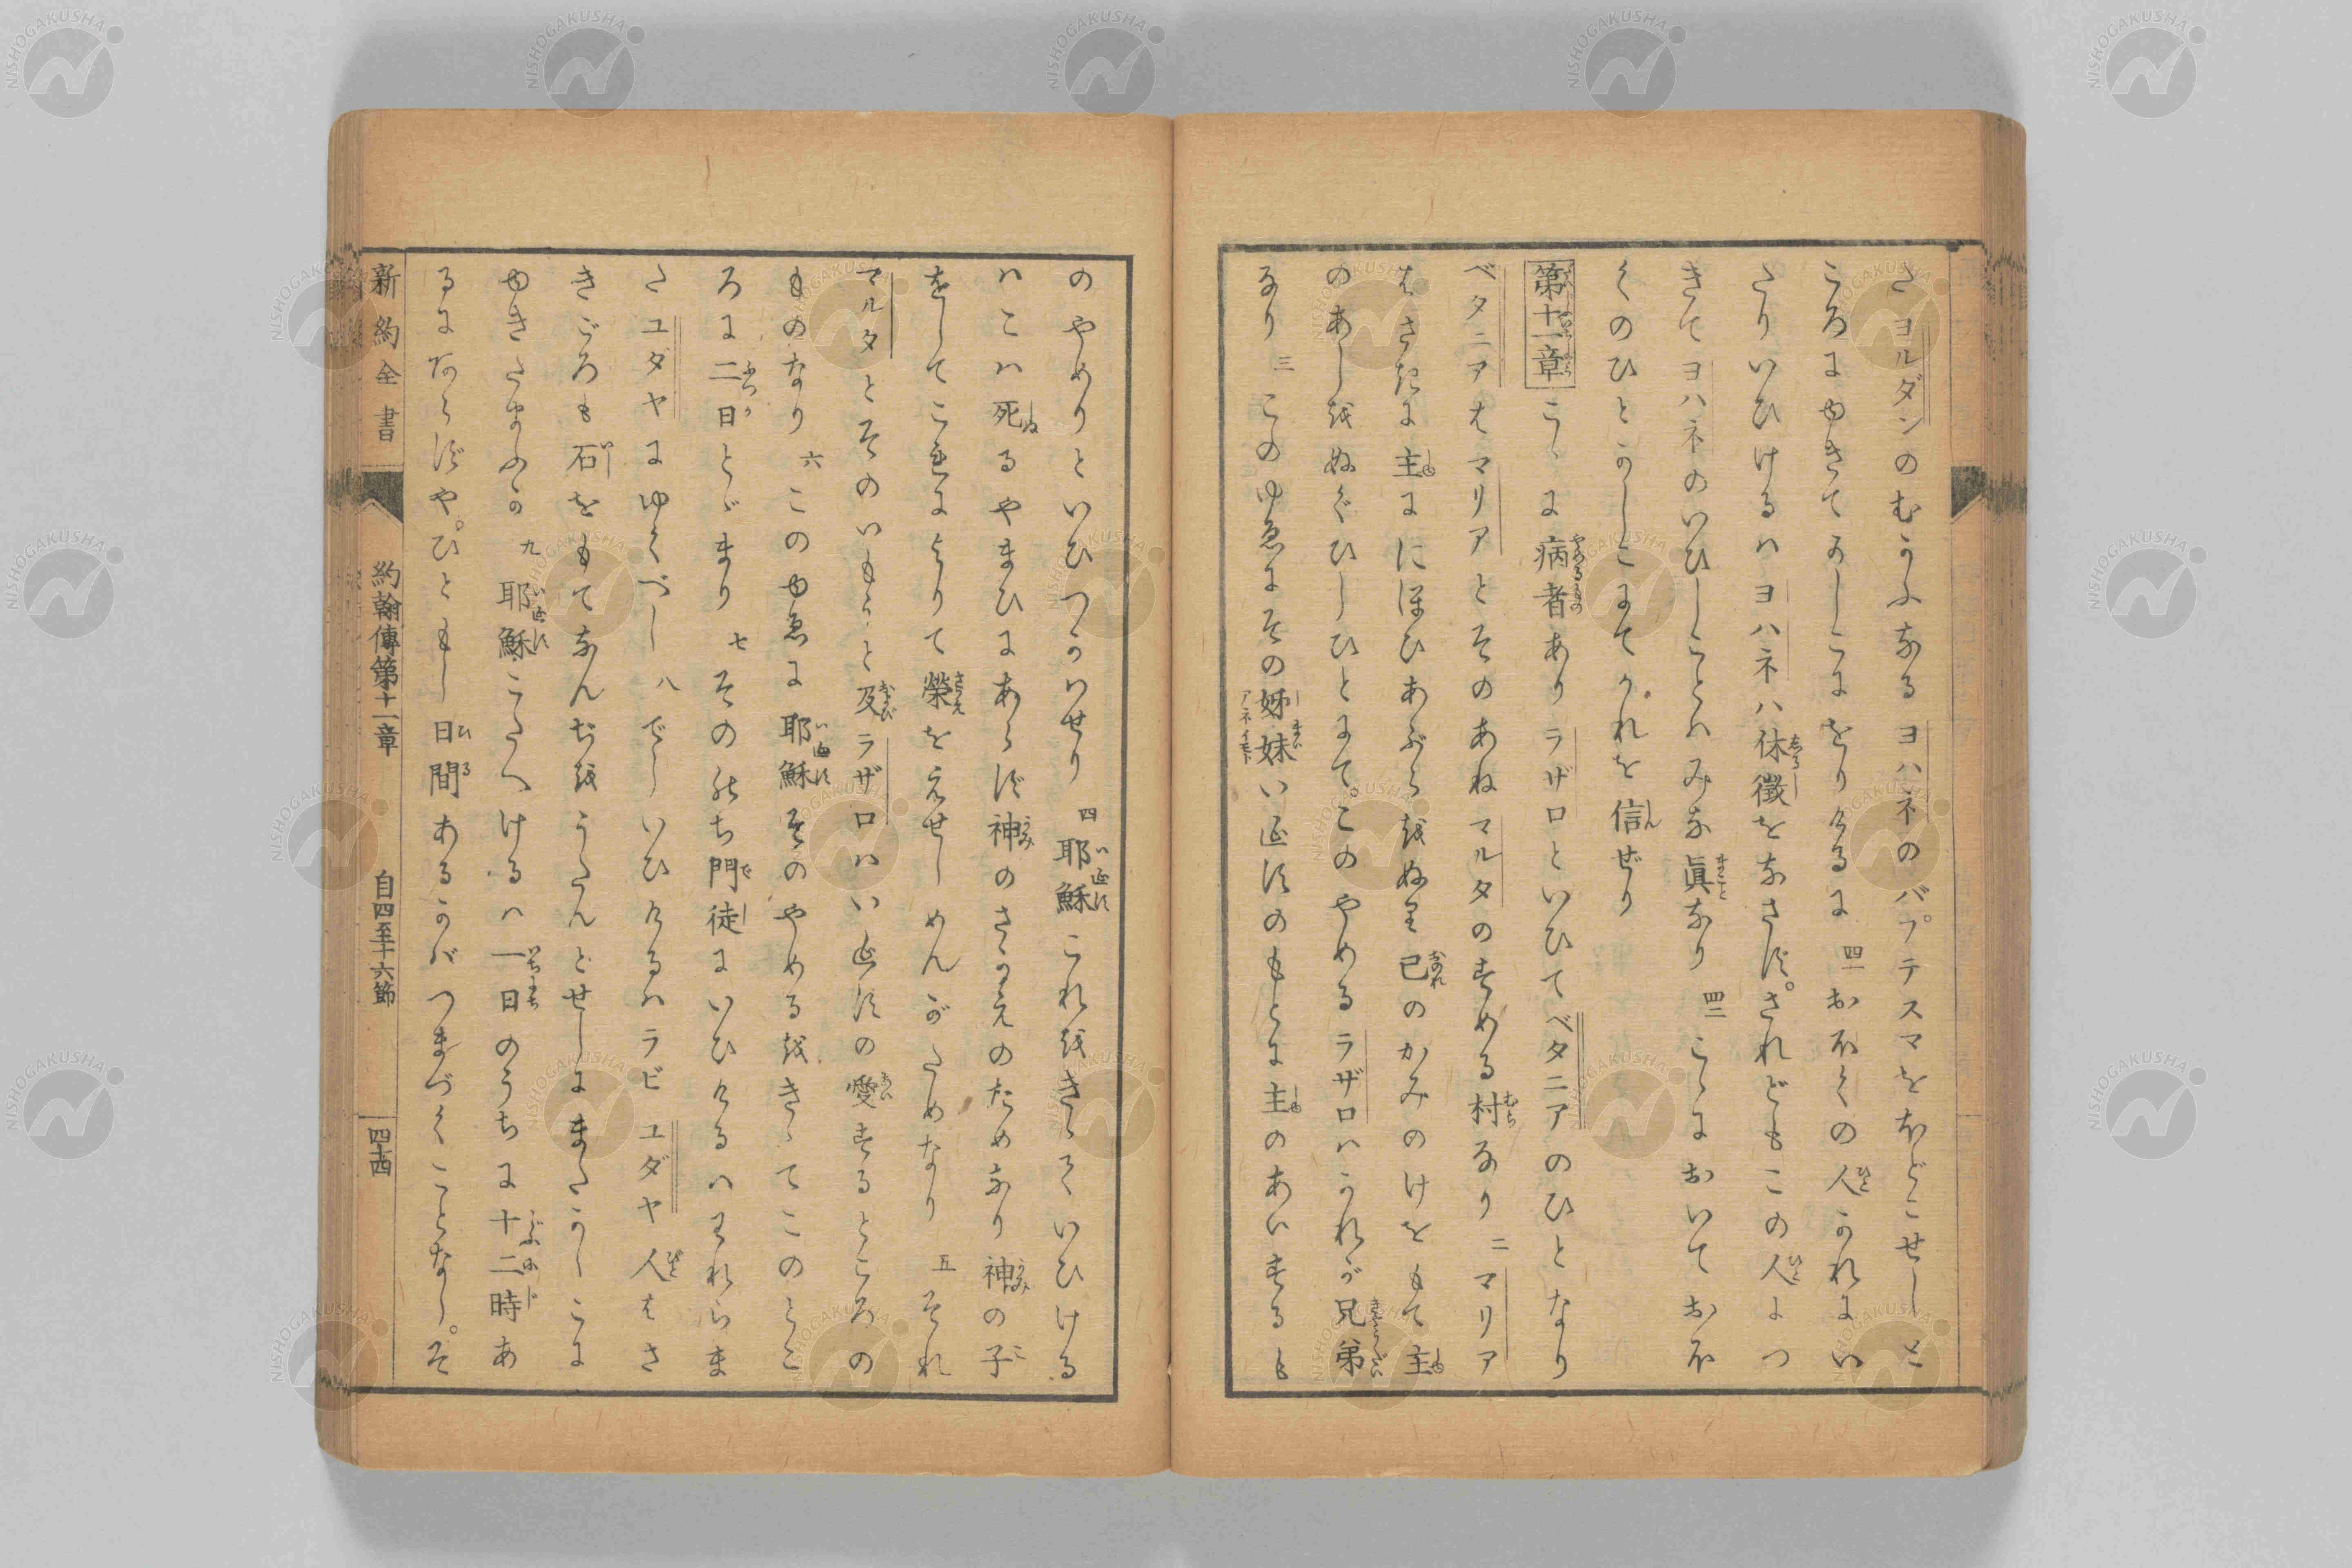 さヨルダンのむかふなるヨハネのバプテスマをおどこせしと
ころにゆきてかしこにをりけるに 四一 おおくの人かれにい
たりいひけるハヨハネハ休徴をなさず。されどもこの人につ
きてヨハネのいひしことハみな眞なり 四二 こゝにおいておお
くのひとかしこにてかれを信ぜり
第十一章 こゝに病者ありラザロといひてベタニアのひとなり
ベタニアはマリアとそのあねマルタのすめる村なり 二 マリア
はさきに主ににほひあぶらをぬり己のかみのけをもて主
のあしをぬぐひしひとにて。このやめるラザロハかれが兄弟
なり 三 このゆゑにその姉妹いゑすのもとに主のあいするも
のやめりといひつかハせり 四 耶穌これをきゝていひける
ハこハ死るやまひにあらず神のさかえのためなり神の子
をしてこれによりて榮をえせしめんがためなり 五 それ
マルタとそのいもうと及ラザロハいゑすの愛するところの
ものなり 六 このゆゑに耶穌そのやめるをきゝてこのとこ
ろに二日とゞまり 七 そののち門徒にいひけるハわれらま
たユダヤにゆくべし 八 でしいひけるハラビユダヤ人はさ
きごろも石をもてなんぢをうたんとせしにまたかしこに
ゆきたまふか 九 耶穌こたへけるハ一日のうちに十二時あ
るにあらずや。ひともし日間あるかバつまづくことなし。そ
新約全書 約翰傳第十一章 自四至十六節 四十四